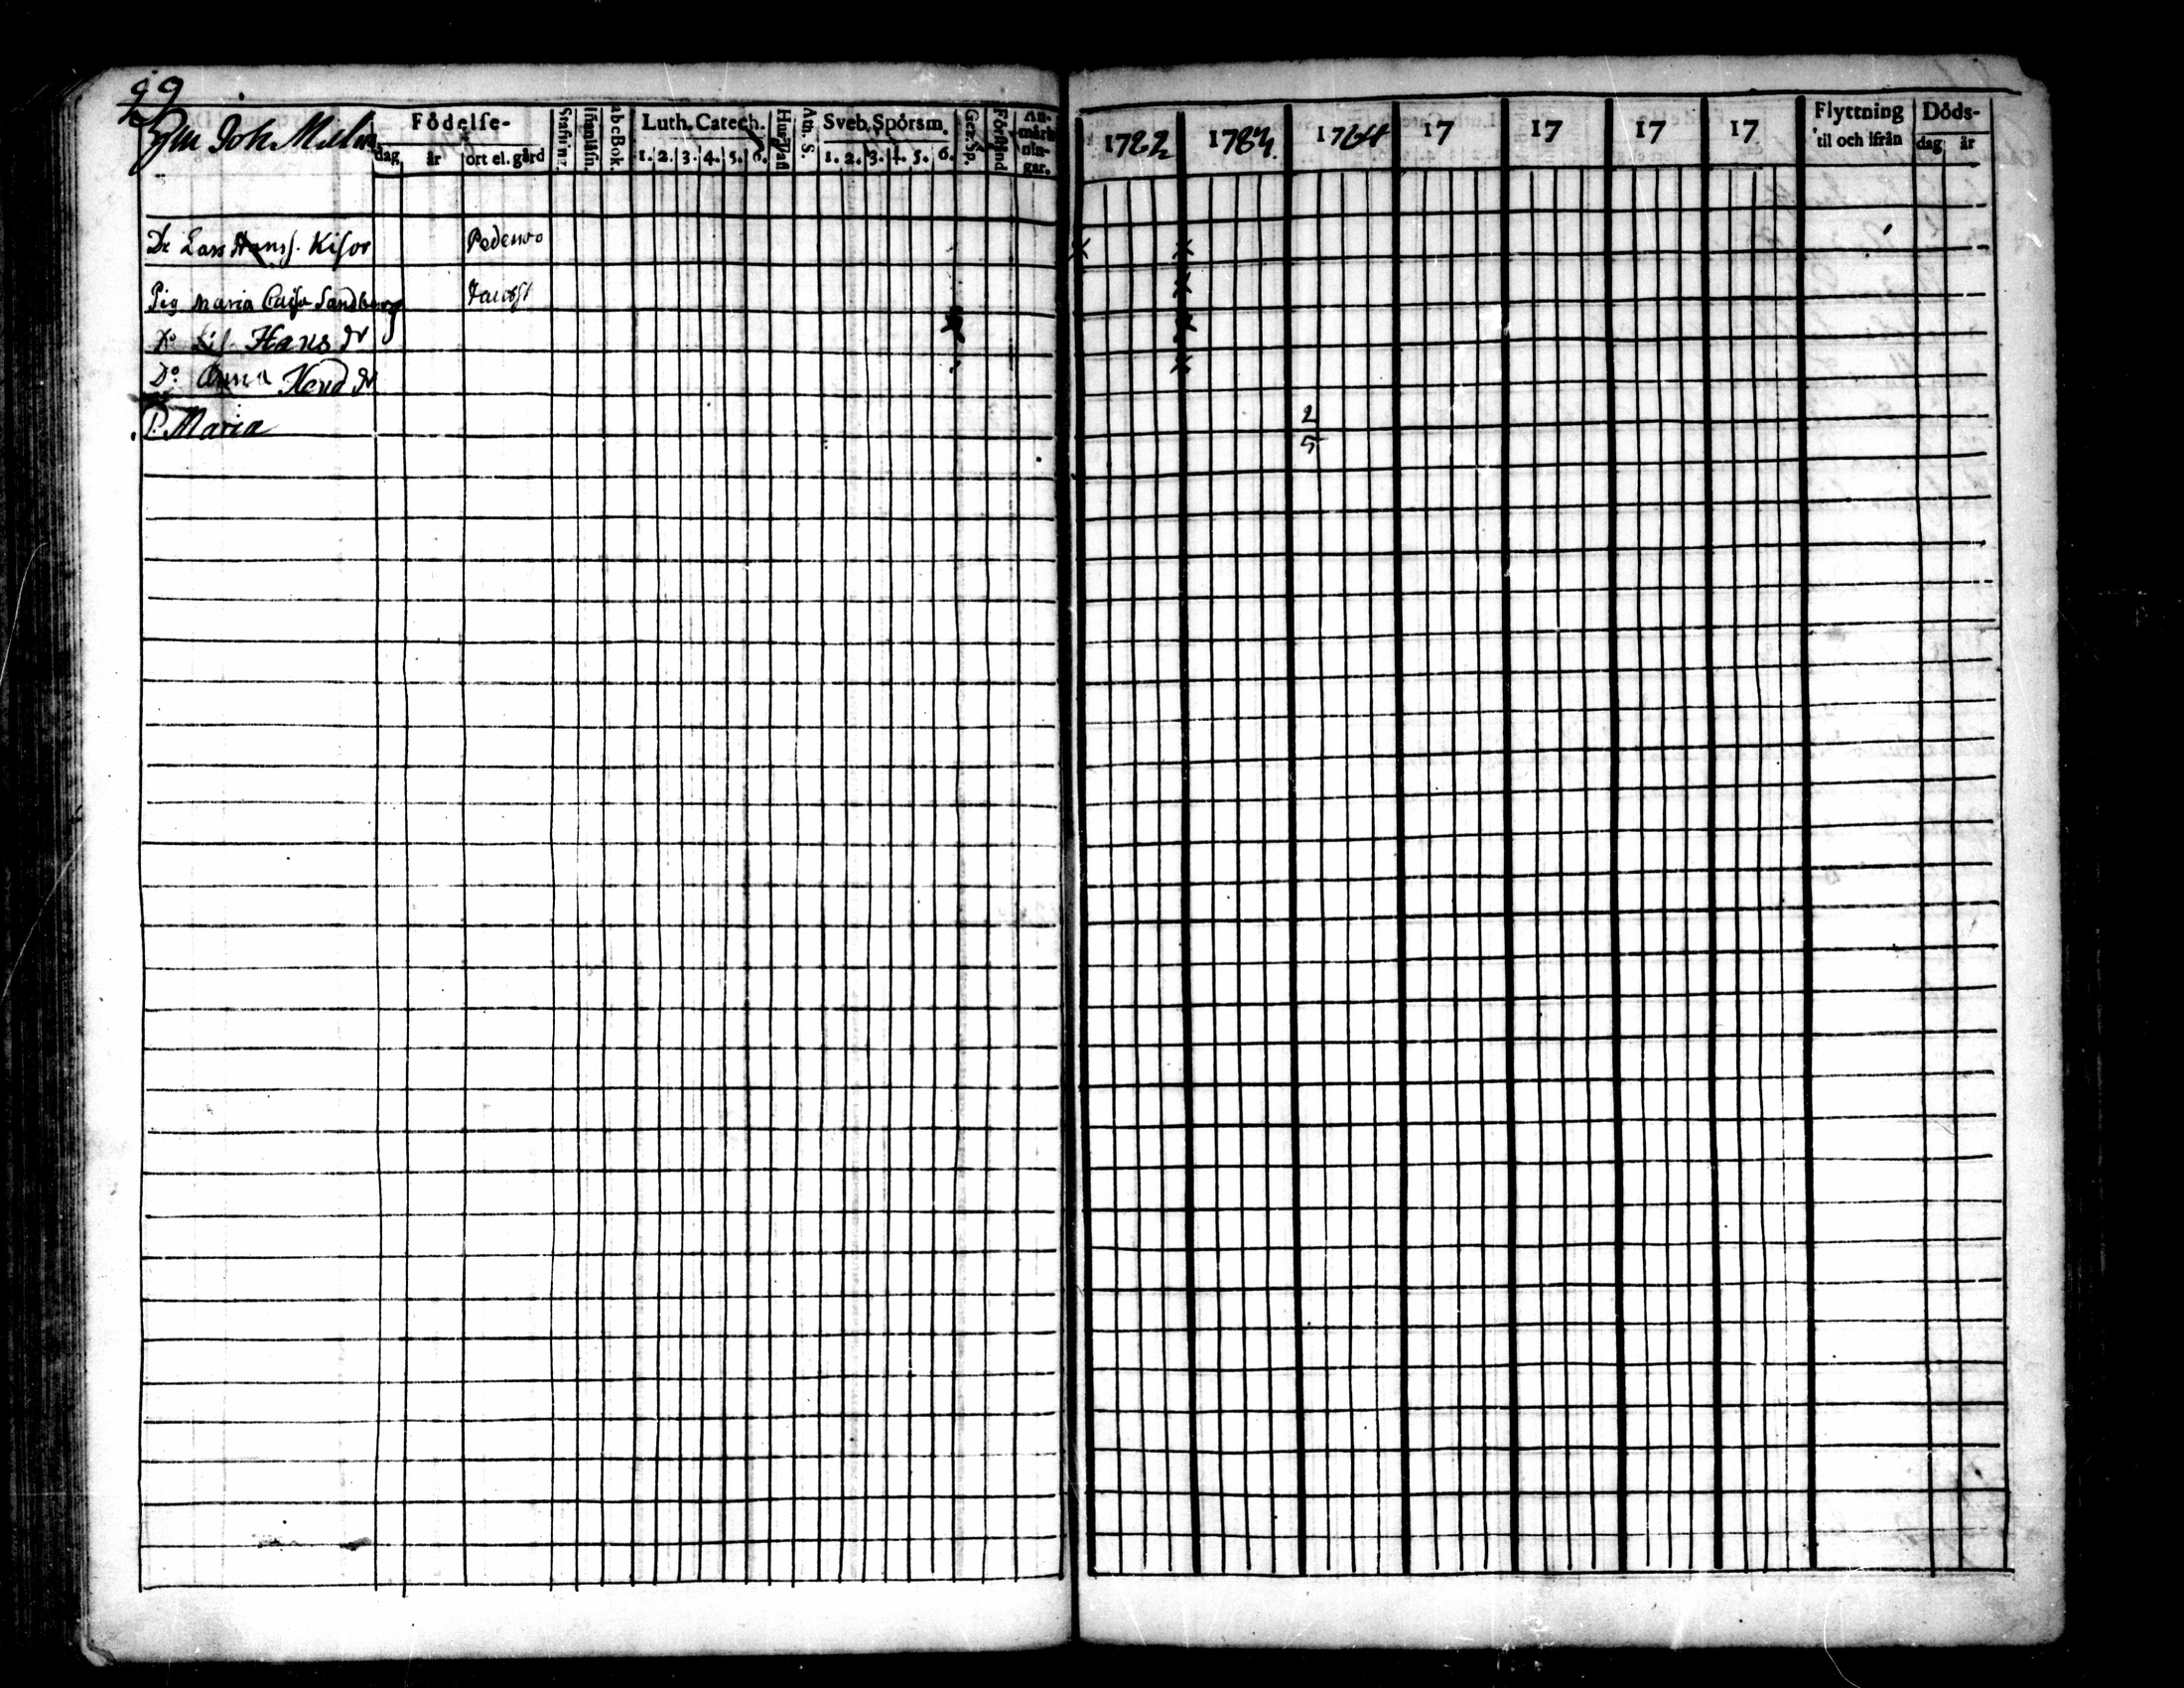 99
Joh. Malm
Födelse-
dag år ort el. gård
Stafn. nr.
Innanläsn.
abcBok.
Luth. Catech.
1. 2. 3. 4. 5. 6.
Hustafl.
Ath. S.
Sveb. Spörsm.
1. 2. 3. 4. 5. 6.
Gez. Sp.
Förstånd
Anmärkningar.
1782 1783. 1784 17 17 17 17
Flyttning
til och ifrån
Döds-
dag år
Dr Lars Hanss. Pedersö
Pig Maria Caisa Sandberg Jacobst
Do Lis Hans dr
Do Anna Hend dr
P. Maria 2
5